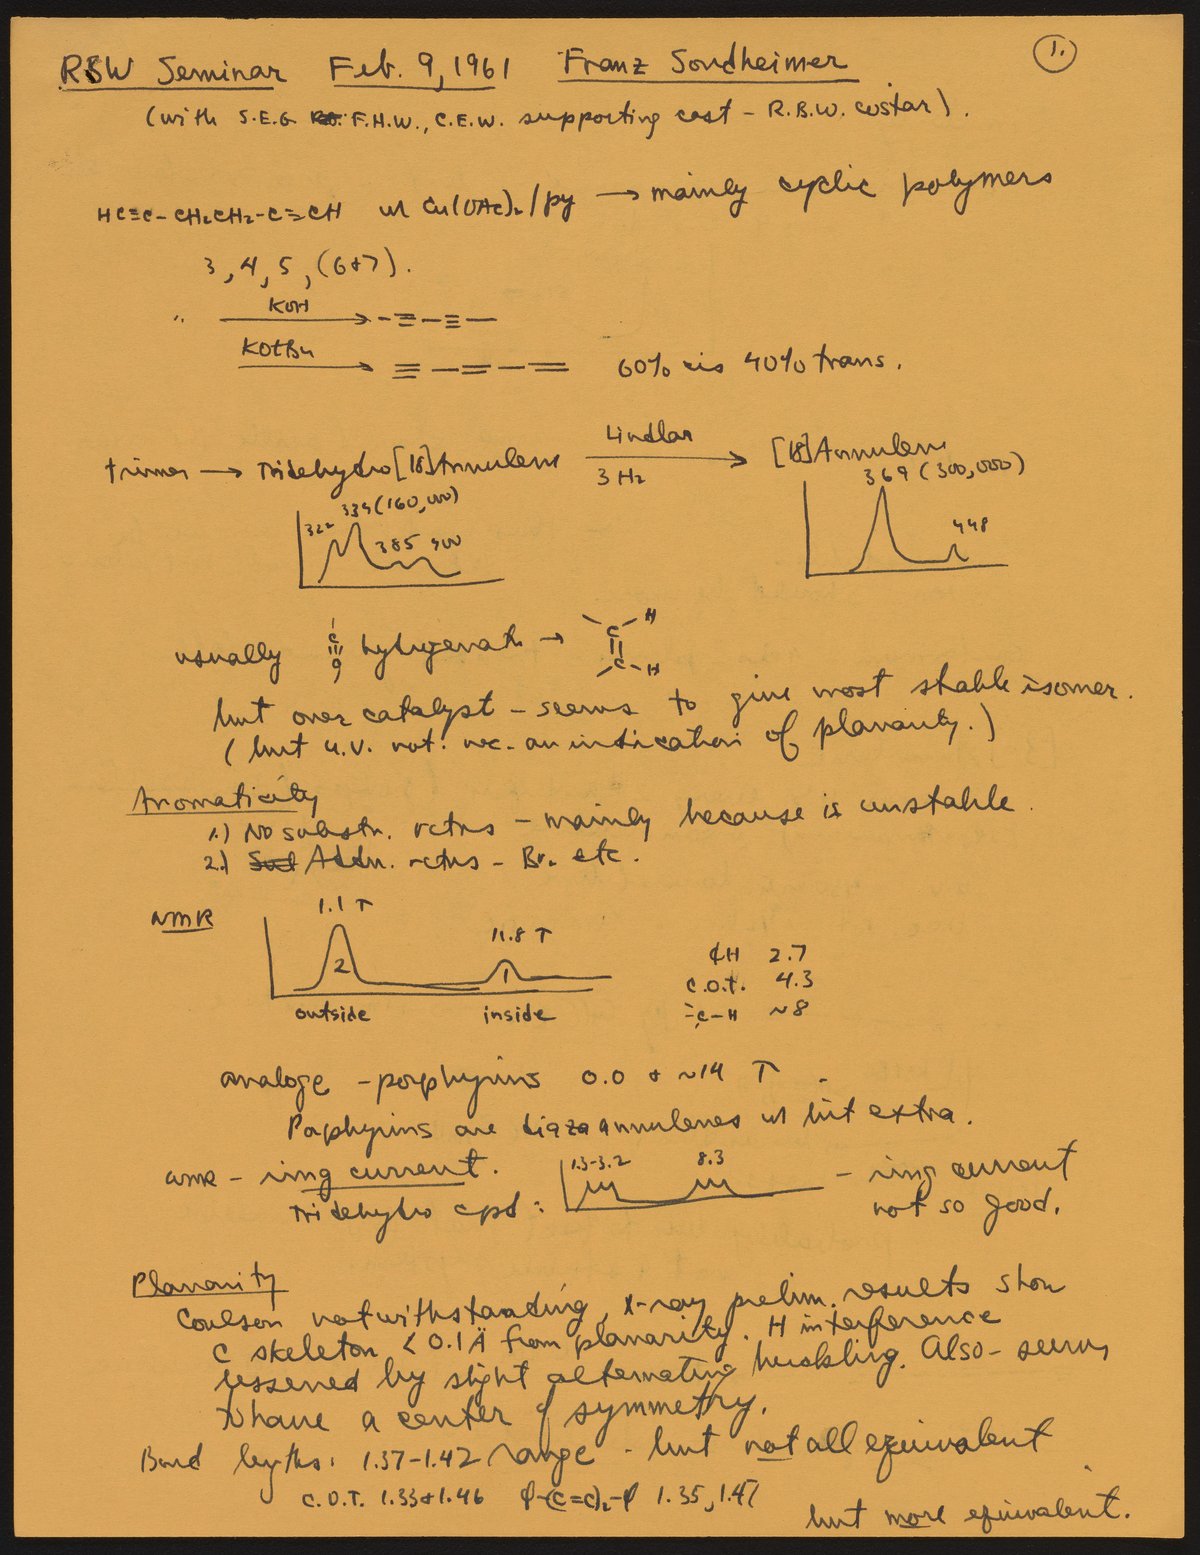 1.
RBW Seminar Feb. 9, 1961 Franz Sondheimer
(with S.E.G. F.H.W., C.E.W. supporting cast - R.B.W. costar).
HC≡C-CH₂CH₂-C≡CH w/ Cu(OAc)₂/py → mainly cyclic polymers
3, 4, 5, (6+7).
" KOH → -≡-≡-
KOtBu → ≡-=-= 60% cis 40% trans.
trimer → Tridehydro[18]Annulene Lindlar 3H₂ → [18]Annulene
322 334(160,000) 385 400
369 (300,000) 448
usually C≡C hydrogenath → C=C H H
but over catalyst - seems to give most stable isomer.
(but u.v. not. nec. an indication of planarity.)
Aromaticity
1.) No substn. rctns - mainly because is unstable.
2.) Addn. rctns - Br₂ etc.
NMR 1.1 τ 11.8 τ
2 1
outside inside
¢H 2.7
C.O.T. 4.3
-C-H ~8
analoge - porphyrins 0.0 + ~14 τ
Porphyrins are diazaannulenes w/ bit extra.
nmr - ring current. 1.3-3.2 8.3 - ring current
Tridehydro cpd: not so good.
Planarity
Coulson notwithstanding, x-ray prelim. results show
C skeleton < 0.1 Å from planarity. H interference
lessened by slight alternating buckling. Also - seems
to have a center of symmetry.
Bond lengths: 1.37-1.42 range - but not all equivalent
C.O.T. 1.33+1.46 φ-(C=C)₂-φ 1.35, 1.47
but more equivalent.